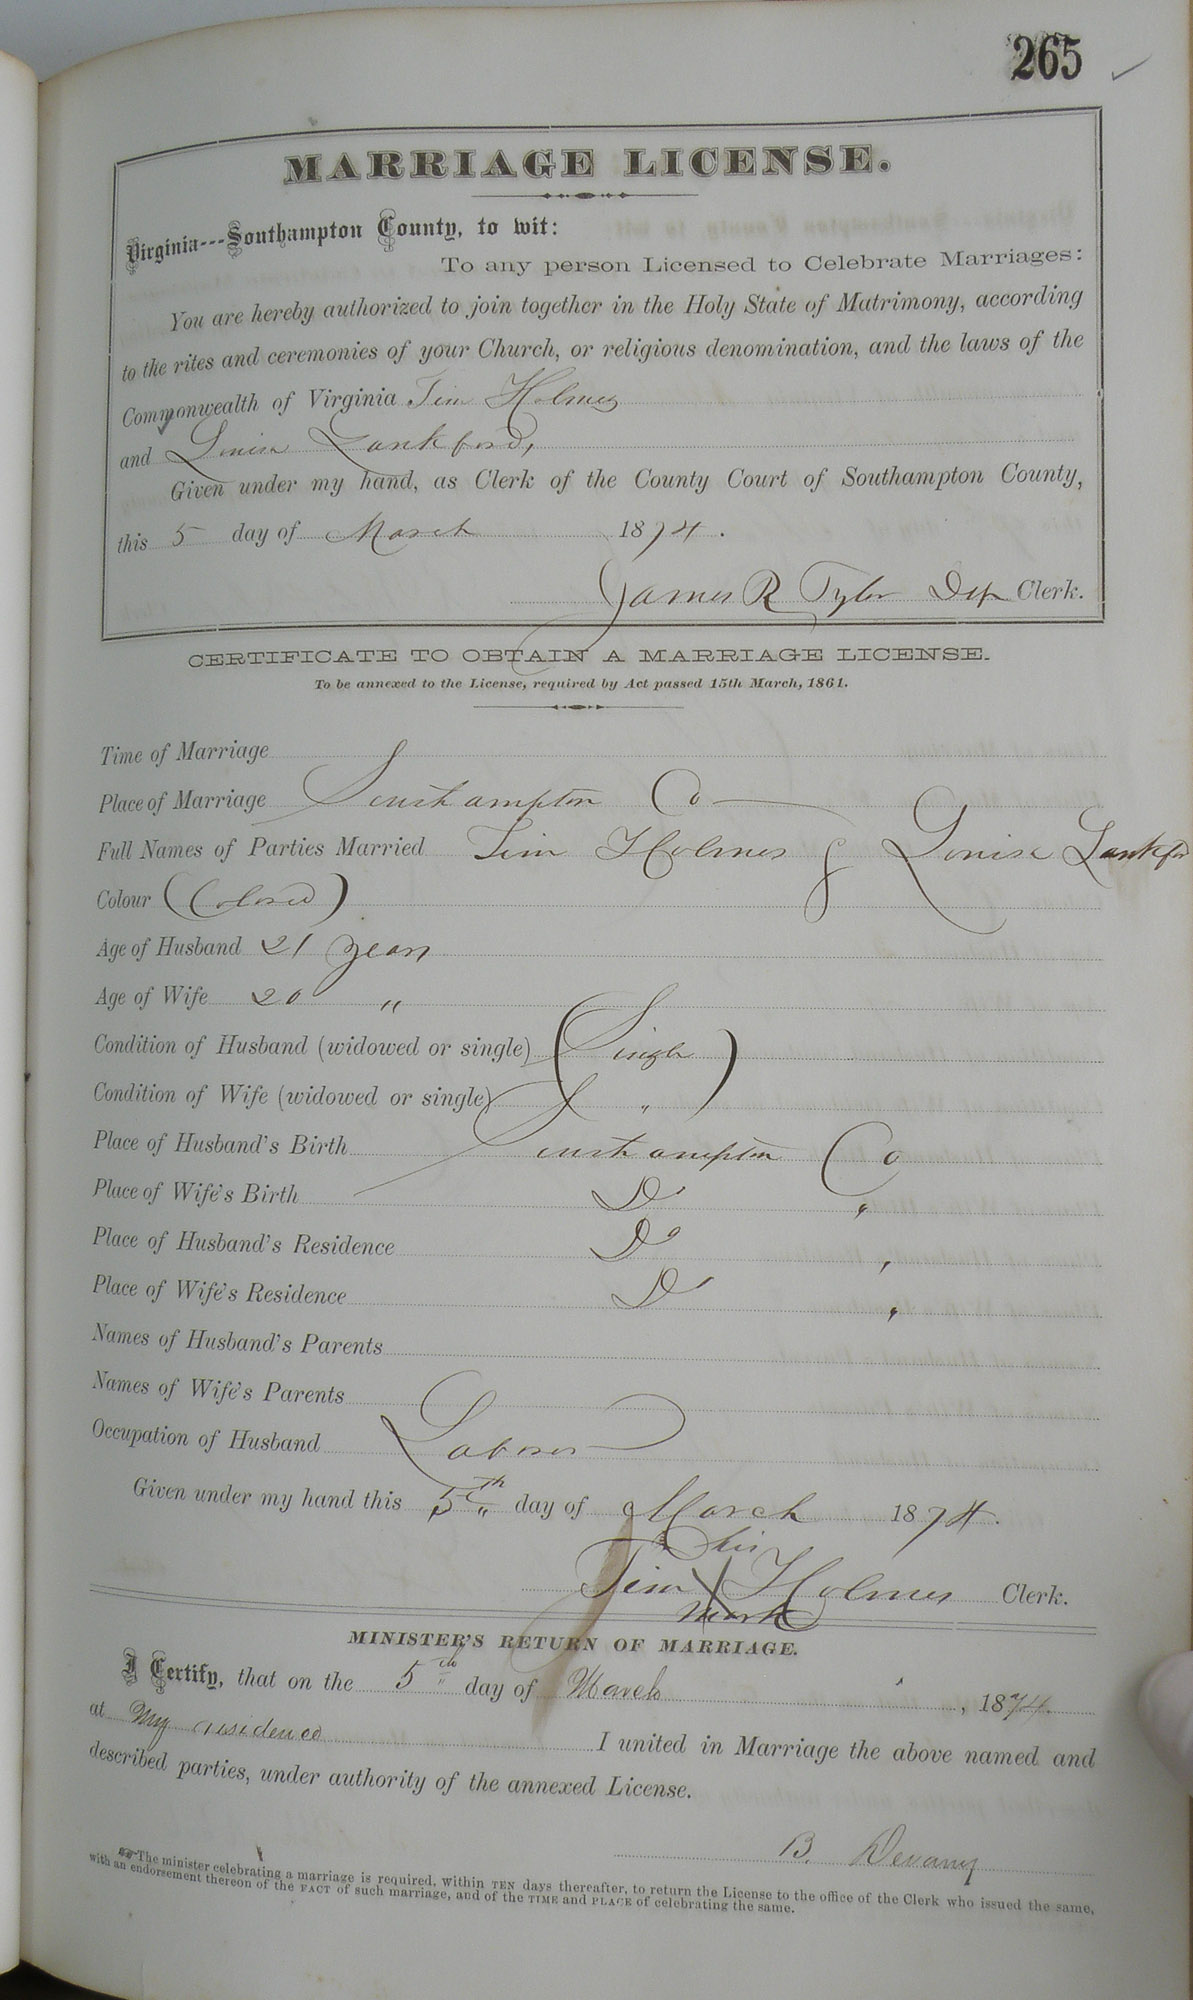 265
MARRIAGE LICENSE.
Virginia---Southampton County, to wit:
To any person Licensed to Celebrate Marriages:
You are hereby authorized to join together in the Holy State of Matrimony, according
to the rites and ceremonies of your Church, or religious denomination, and the laws of the
Commonwealth of Virginia Tim Holmes
and Louisa Lankford,
Given under my hand, as Clerk of the County Court of Southampton County,
this 5 day of March 1874.
James R Tyler Dep Clerk.
CERTIFICATE TO OBTAIN A MARRIAGE LICENSE.
To be annexed to the License, required by Act passed 15th March, 1861.
Time of Marriage
Place of Marriage Southampton Co
Full Names of Parties Married Tim Holmes & Louisa Lankfor
Colour (Colored)
Age of Husband 21 years
Age of Wife 20 "
Condition of Husband (widowed or single) (Single)
Condition of Wife (widowed or single) "
Place of Husband's Birth Southampton Co
Place of Wife's Birth Do "
Place of Husband's Residence Do "
Place of Wife's Residence Do "
Names of Husband's Parents
Names of Wife's Parents
Occupation of Husband Laborer
Given under my hand this 5th day of March 1874.
his
Tim X Holmes Clerk.
mark
MINISTER'S RETURN OF MARRIAGE.
I Certify, that on the 5th day of March, 1874.
at My residence I united in Marriage the above named and
described parties, under authority of the annexed License.
B. Devany
The minister celebrating a marriage is required, within TEN days thereafter, to return the License to the office of the Clerk who issued the same,
with an endorsement thereon of the FACT of such marriage, and of the TIME and PLACE of celebrating the same.